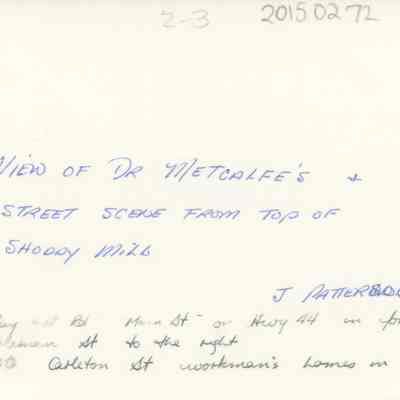 2-3 20150272
VIEW OF DR METCALFE'S +
STREET SCENE FROM TOP OF
SHODDY MILL
J PATTERSON
Rd Main St - or Hwy 44 in
St to the right
Carleton St workman's homes in